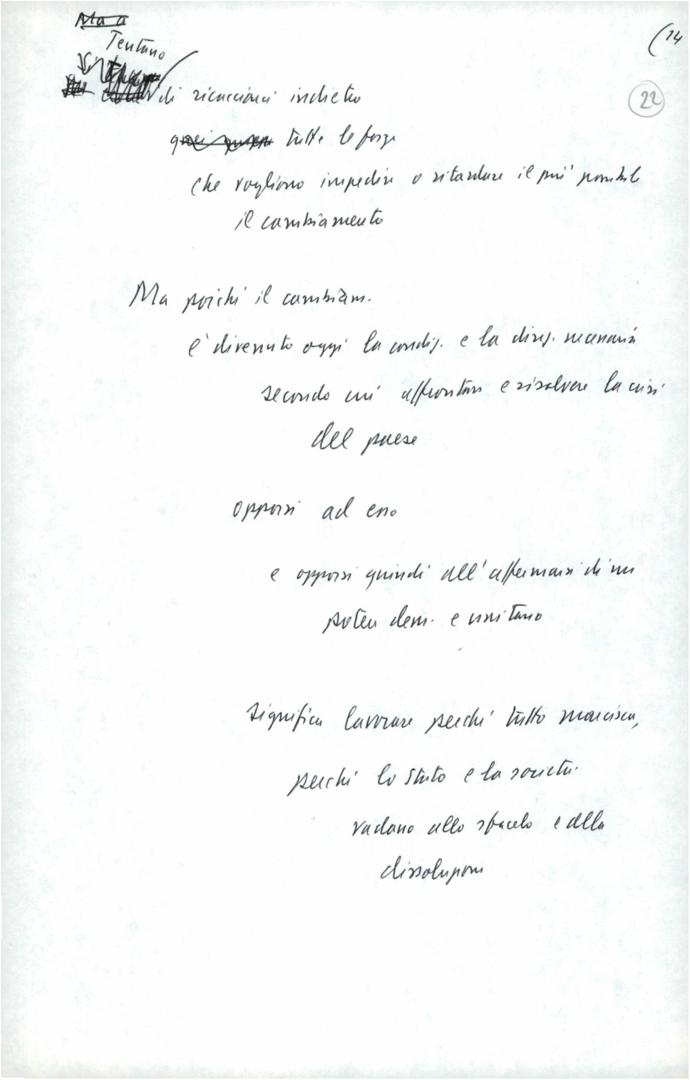 (14
22
Ma a
Tentano
di ricacciarci indietro
tutte le forze
che vogliono impedire o ritardare il più possibile
il cambiamento
Ma poiché il cambiam.
è divenuto oggi la condiz. e la direz. necessaria
secondo cui affrontare e risolvere la crisi
del paese
opporsi ad esso
e opporsi quindi all'affermarsi di un
potere dem. e unitario
significa lavorare perché tutto marcisca,
perché lo Stato e la società
vadano allo sfacelo e alla
dissoluzione